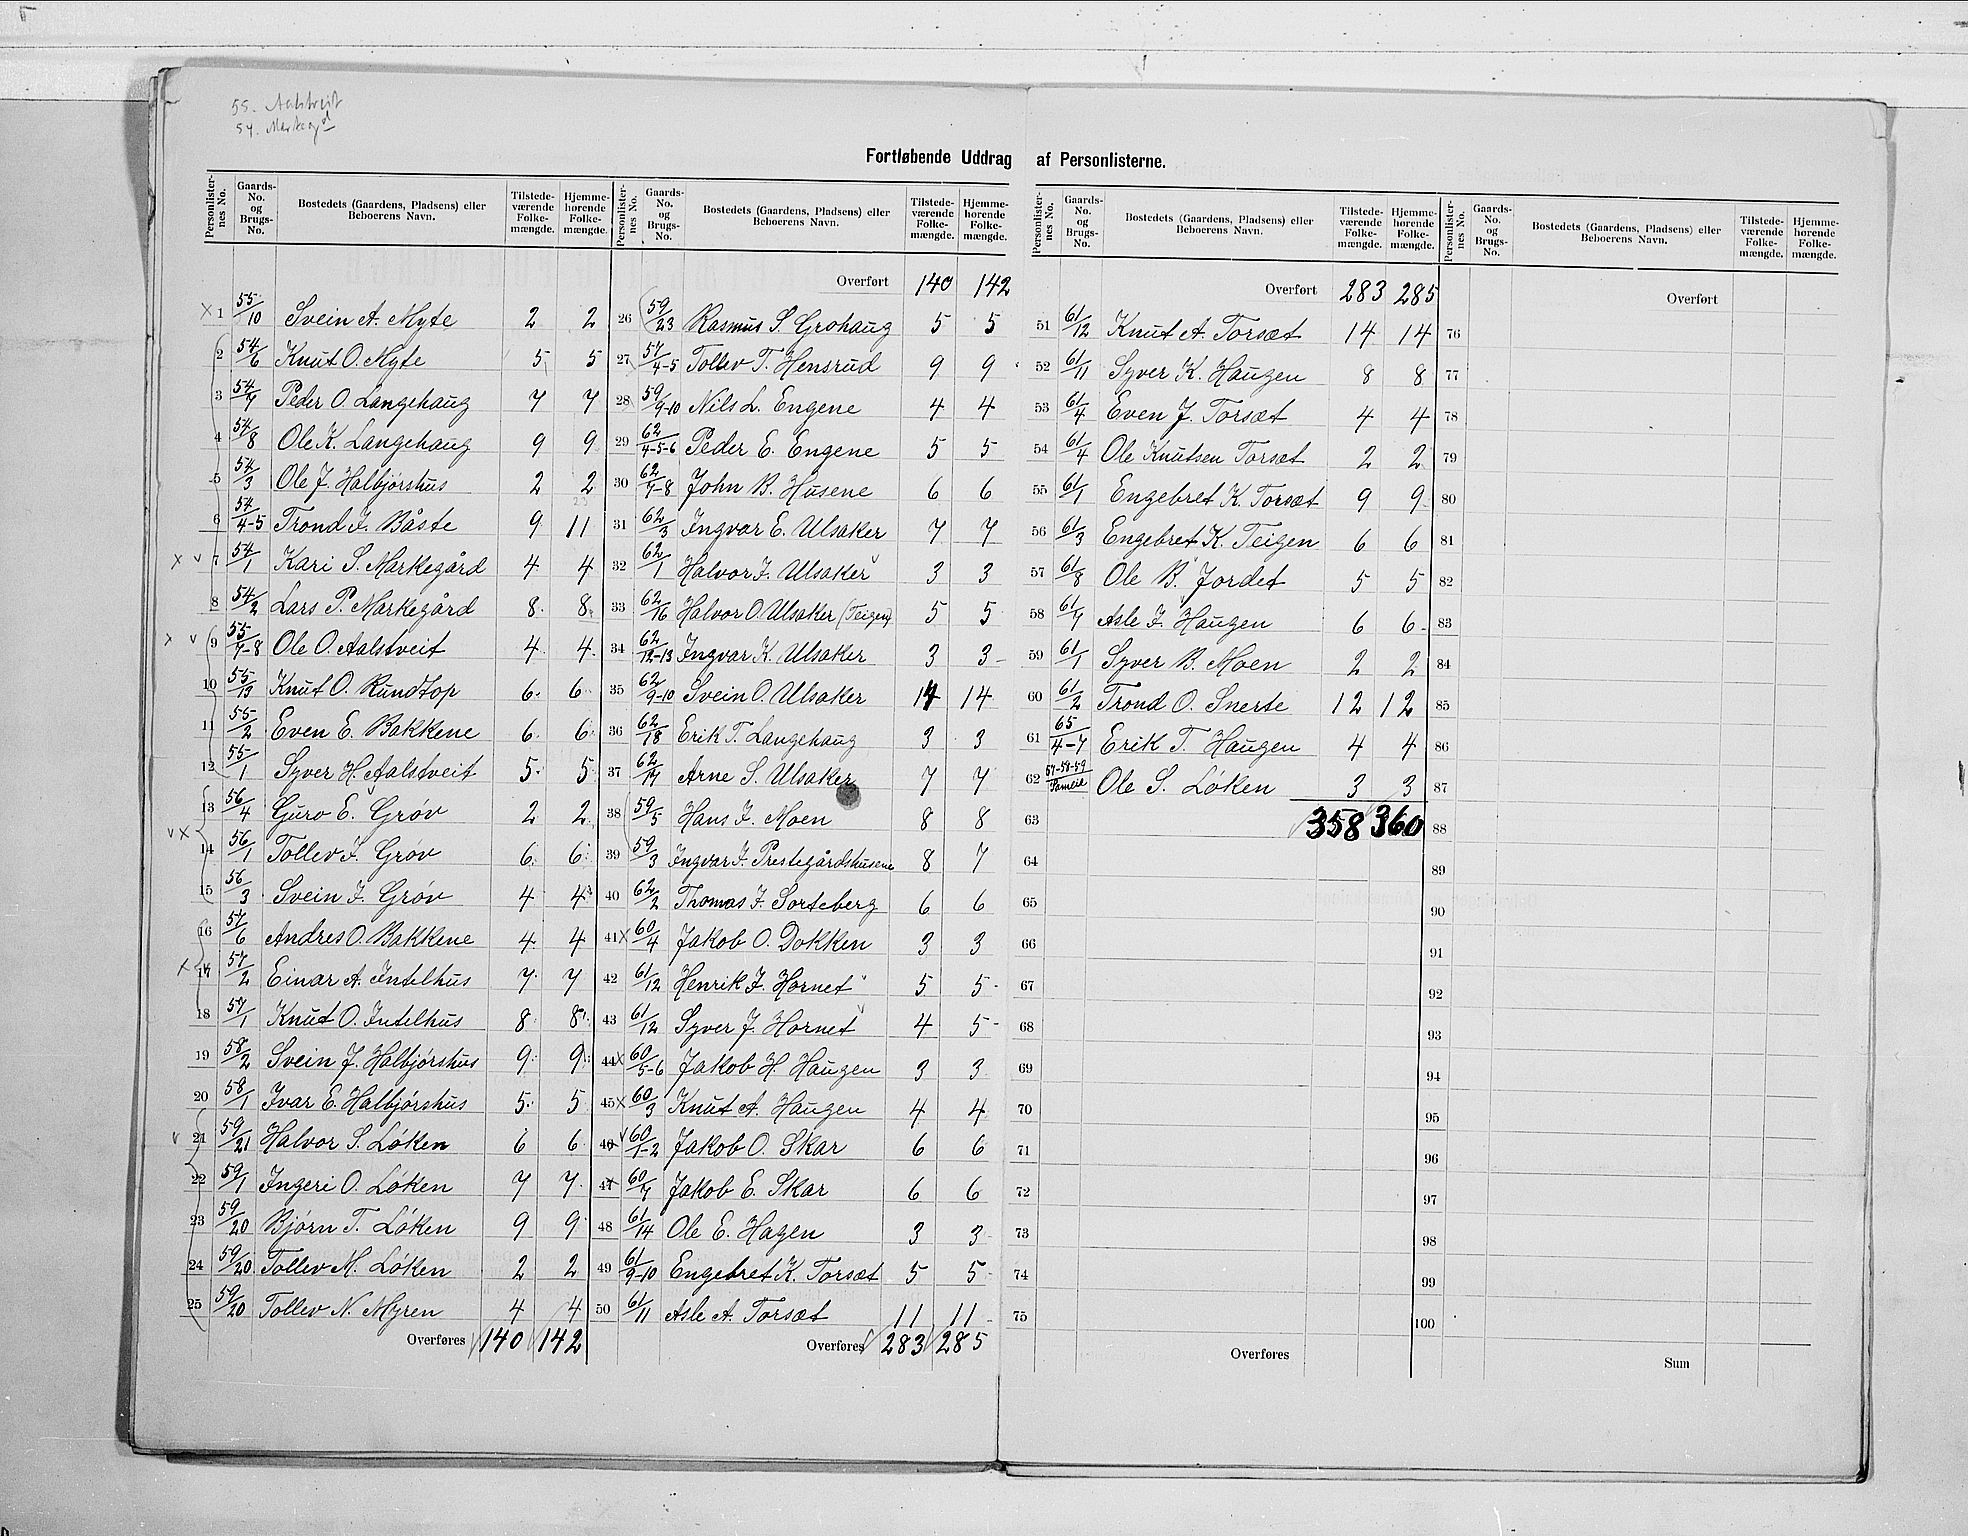 55. Aalstveit
54. Markegd
Fortløbende Uddrag af Personlisterne.
Personlisternes No. Gaards-No. og Brugs-No. Bostedets (Gaardens, Pladsens) eller Beboerens Navn. Tilstedeværende Folkemængde. Hjemmehørende Folkemængde.
x 1 55/10 Svein A. Myte 2 2
2 54/6 Knut O. Myte 5 5
3 54/7 Peder O. Langehaug 7 7
4 54/8 Ole K. Langehaug 9 9
5 54/3 Ole J. Halbjørshus 2 2
6 54/4-5 Trond J. Båste 9 11
x v 7 54/1 Kari S. Markegård 4 4
8 54/2 Lars P. Markegård 8 8
x v 9 55/7-8 Ole O. Aalstveit 4 4
10 55/13 Knut O. Rundtop 6 6
11 55/2 Even E. Bakkene 6 6
12 55/1 Syver H. Aalstveit 5 5
13 56/4 Guro E. Grøv 2 2
v x 14 56/1 Tollev J. Grøv 6 6
15 56/3 Svein J. Grøv 4 4
16 57/6 Andres O. Bakkene 4 4
x 17 57/2 Einar A. Intelhus 7 7
18 57/1 Knut O. Intelhus 8 8
19 58/2 Svein J. Halbjørshus 9 9
20 58/1 Ivar E. Halbjørshus 5 5
v 21 59/21 Halvor S. Løken 6 6
22 59/1 Ingeri O. Løken 7 7
23 59/20 Bjørn T. Løken 9 9
24 59/20 Tollev M. Løken 2 2
25 59/20 Tollev N. Myren 4 4
Overføres 140 142
Personlisternes No. Gaards-No. og Brugs-No. Bostedets (Gaardens, Pladsens) eller Beboerens Navn. Tilstedeværende Folkemængde. Hjemmehørende Folkemængde.
Overført 140 142
26 59/23 Rasmus S. Grohaug 5 5
27 57/4-5 Tollev T. Hensrud 9 9
28 59/9-10 Nils L. Engene 4 4
29 62/4-5-6 Peder E. Engene 5 5
30 62/7-8 John B. Husene 6 6
31 62/3 Ingvar E. Ulsaker 7 7
32 62/1 Halvor J. Ulsaker 3 3
33 62/16 Halvor O. Ulsaker (Teigen) 5 5
34 62/12-13 Ingvar K. Ulsaker 3 3
35 62/9-10 Svein O. Ulsaker 14 14
36 62/18 Erik T. Langehaug 3 3
37 62/17 Arne S. Ulsaker 7 7
38 59/5 Hans J. Moen 8 8
39 59/3 Ingvar J. Prestegårdshusene 8 7
40 62/2 Thomas J. Sorteberg 6 6
41 x 60/4 Jakob O. Dokken 3 3
42 61/12 Henrik J. Hornet 5 5
43 61/12 Syver J. Hornet 4 5
44 x 60/5-6 Jakob H. Haugen 3 3
45 x 60/3 Knut A. Haugen 4 4
46 v 60/1-2 Jakob O. Skar 6 6
47 60/7 Jakob E. Skar 6 6
48 61/14 Ole E. Hagen 3 3
49 61/9-10 Engebret K. Torsæt 5 5
50 61/11 Asle A. Torsæt 11 11
Overføres 283 285
Personlisternes No. Gaards-No. og Brugs-No. Bostedets (Gaardens, Pladsens) eller Beboerens Navn. Tilstedeværende Folkemængde. Hjemmehørende Folkemængde.
Overført 283 285
51 61/12 Knut A. Torsæt 14 14
52 61/11 Syver K. Haugen 8 8
53 61/4 Even J. Torsæt 4 4
54 61/4 Ole Knutsen Torsæt 2 2
55 61/1 Engebret K. Torsæt 9 9
56 61/3 Engebret K. Teigen 6 6
57 61/8 Ole B. Jordet 5 5
58 61/7 Asle J. Haugen 6 6
59 61/1 Syver B. Moen 2 2
60 61/2 Trond O. Snerte 12 12
61 65/4-7 Erik T. Haugen 4 4
62 57-58-59/Sameie Ole S. Løken 3 3
63 358 360
64
65
66
67
68
69
70
71
72
73
74
75
Overføres
Personlisternes No. Gaards-No. og Brugs-No. Bostedets (Gaardens, Pladsens) eller Beboerens Navn. Tilstedeværende Folkemængde. Hjemmehørende Folkemængde.
Overført
76
77
78
79
80
81
82
83
84
85
86
87
88
89
90
91
92
93
94
95
96
97
98
99
100
Sum